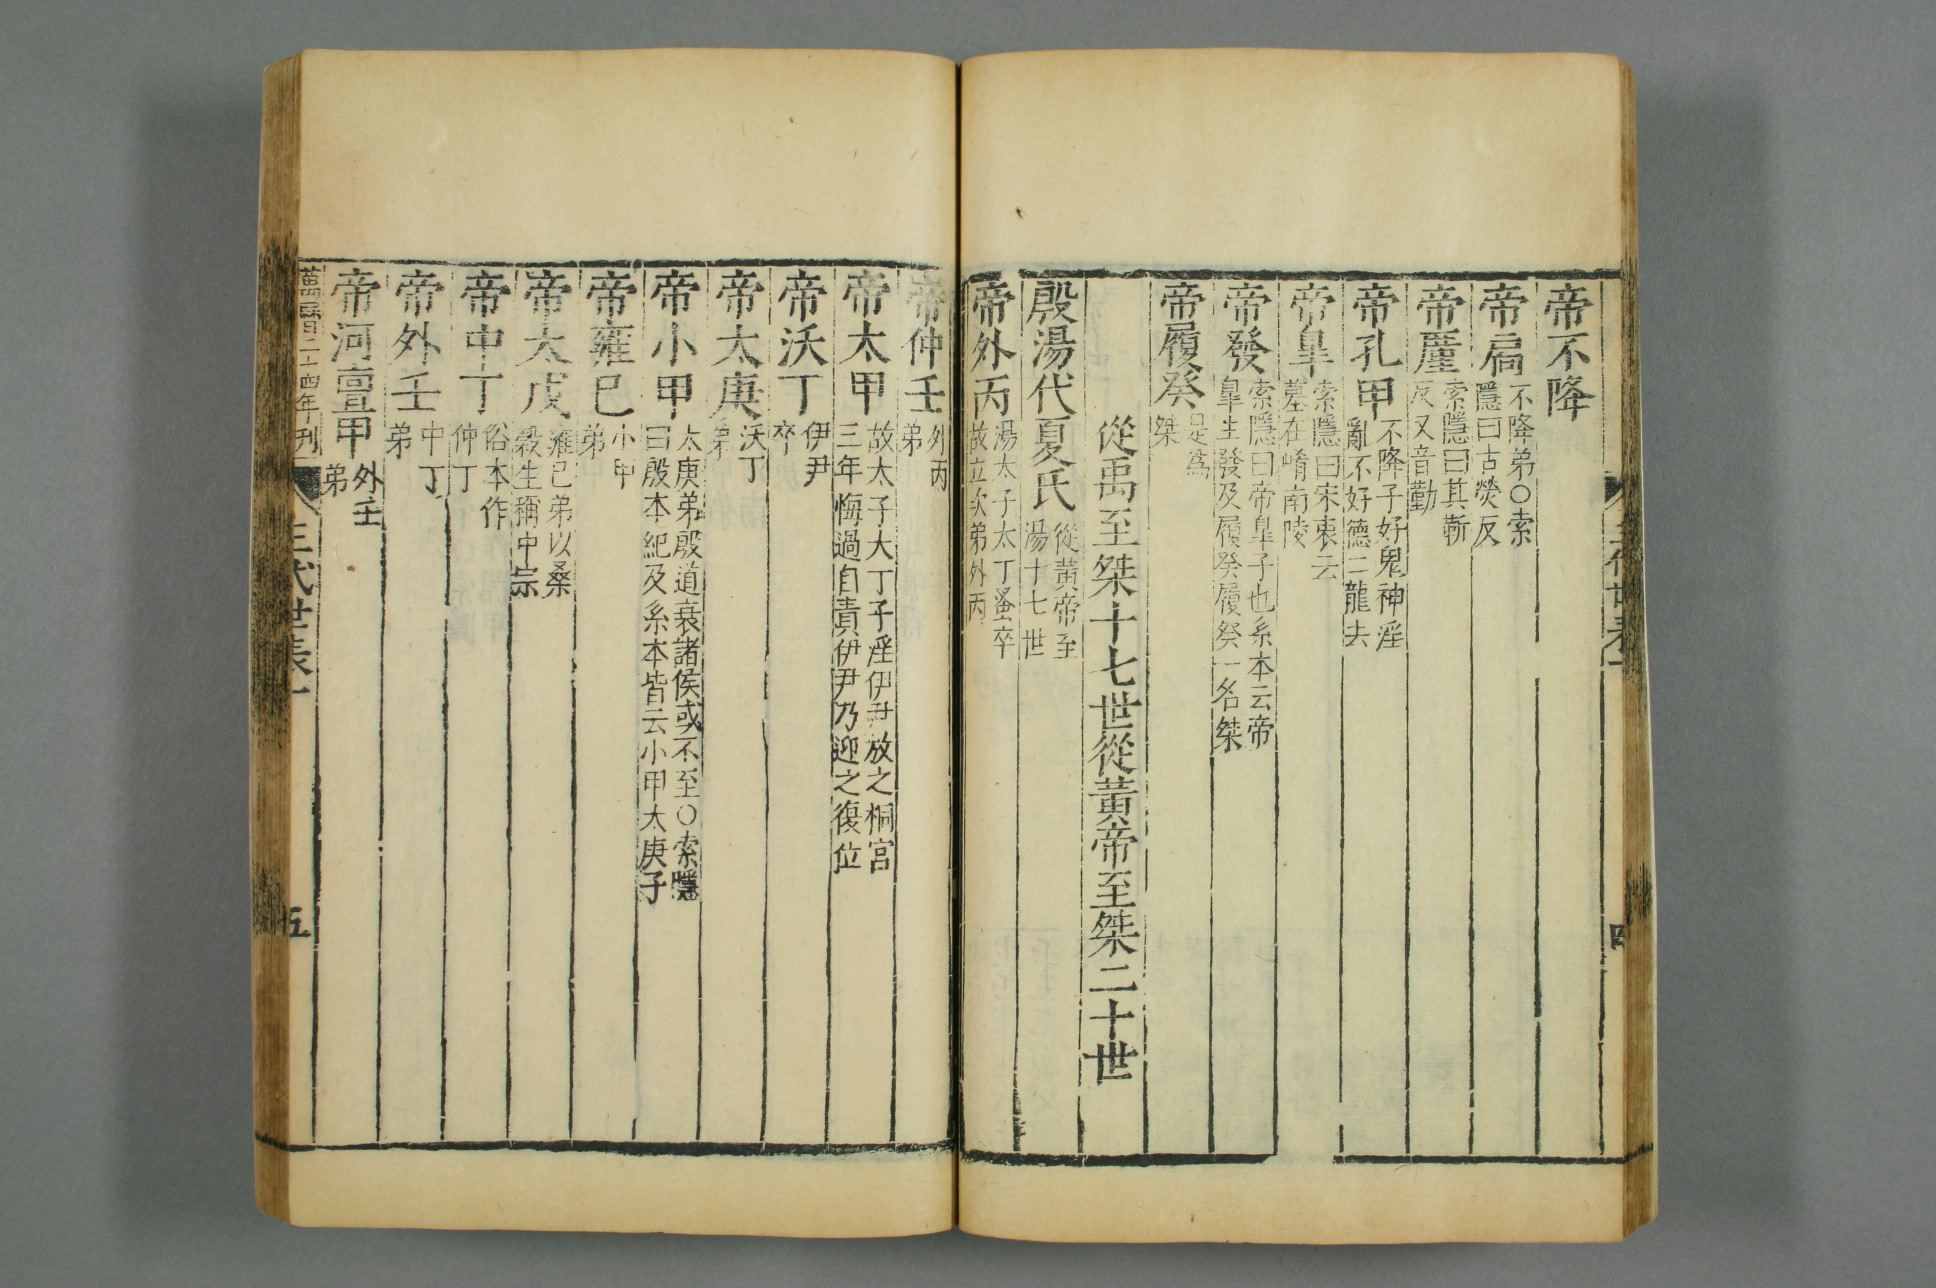 帝不降
帝扃不降弟○索隱曰古熒反
帝廑索隱曰其靳反又音勤
帝孔甲不降子好鬼神淫亂不好德二龍去
帝皐索隱曰宋衷云墓在崤南陵
帝發索隱曰帝皐子也系本云帝皐生發及履癸履癸一名桀
帝履癸是爲桀
從禹至桀十七世從黃帝至桀二十世
殷湯代夏氏從黃帝至湯十七世
帝外丙湯太子太丁蚤卒故立次弟外丙
帝仲壬外丙弟
帝太甲故太子大丁子淫伊尹放之桐宮三年悔過自責伊尹乃迎之復位
帝沃丁伊尹卒
帝太庚沃丁弟
帝小甲太庚弟殷道衰諸侯或不至○索隱曰殷本紀及系本皆云小甲太庚子
帝雍巳小甲弟
帝太戊雍巳弟以桑穀生稱中宗
帝中丁俗本作仲丁
帝外壬中丁弟
帝河亶甲外壬弟
萬曆二十四年刊
三代世表一
五